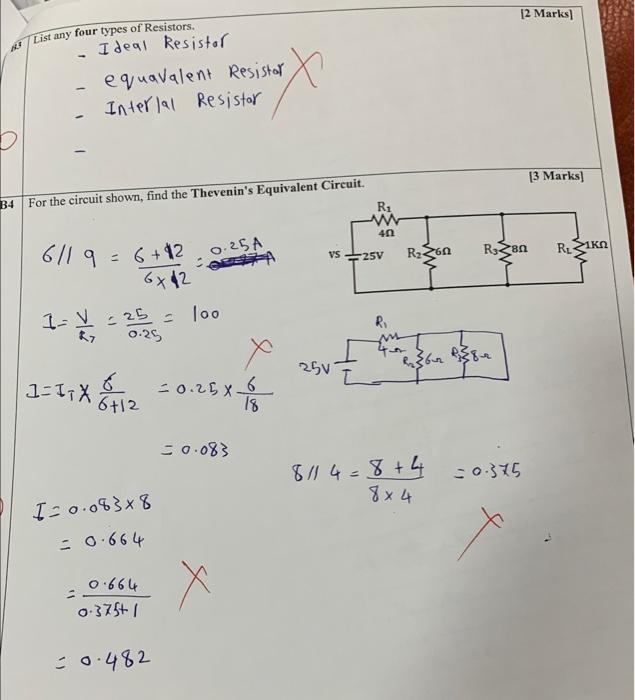 [2 Marks]
B3 List any four types of Resistors.
- Ideal Resistor
- equavalent Resistor
- Interlal Resistor
-
[3 Marks]
B4 For the circuit shown, find the Thevenin's Equivalent Circuit.
R1
4Ω
VS 25V R2 6Ω R3 8Ω RL 1KΩ
6//9 = 6+12 / 6×12 = 0.25A
I = V / = 25 / 0.25 = 100
R1
4Ω
25V R2 6Ω R3 8Ω
I = IT × 6 / 6+12 = 0.25 × 6 / 18
= 0.083
8//4 = 8+4 / 8×4 = 0.375
I = 0.083×8
= 0.664
= 0.664 / 0.375+1
= 0.482